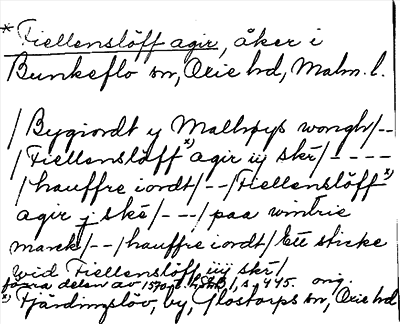 * Fiellenslöff agir, åker i
Bunkeflo sn, Oxie hd, Malm. l.
/Bygiordt y Malthøys wongh/--
/Fiellenslöff x) agir iij skt/----
/hauffre iordt/--/Fiellenslöff x)
agir j skt/---/paa wintrie
marck/--/hauffre iordt/Ett sticke
wid Fiellenslöff iiij skt/
förra delen av 1570 s. 445. orig.
x) Fjärdingslöv, by, Glostorps sn, Oxie hd